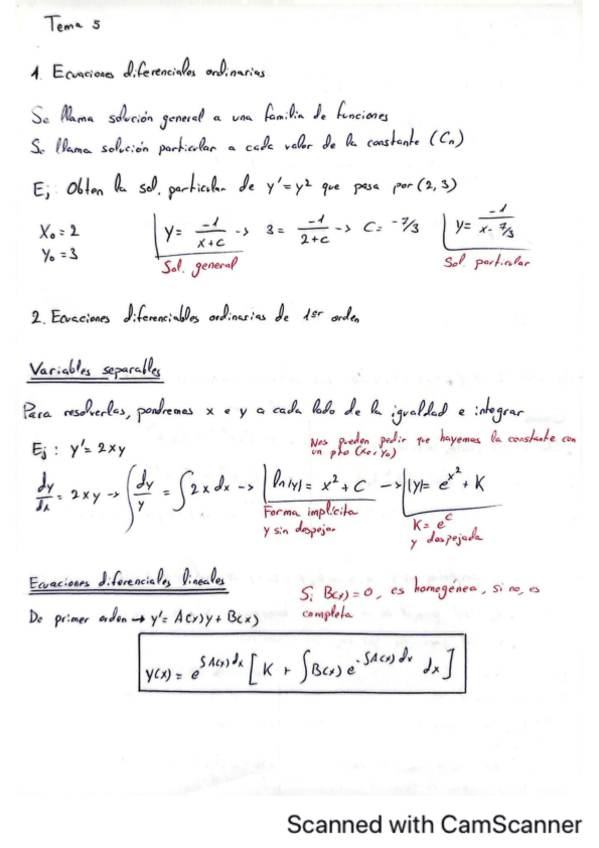 Tema 5
1. Ecuaciones diferenciales ordinarias
Se llama solución general a una familia de funciones
Se llama solución particular a cada valor de la constante (Cn)
Ej: Obten la sol. particular de y' = y² que pasa por (2,3)
X₀ = 2
Y₀ = 3
y = -1/(x+c) -> 3 = -1/(2+c) -> C = -7/3
y = -1/(x - 7/3)
Sol. general
Sol. particular
2. Ecuaciones diferenciables ordinarias de 1er orden
Variables separables
Para resolverlas, pondremos x e y a cada lado de la igualdad e integrar
Ej: y' = 2xy
Nos pueden pedir que hayemos la constante con
un pto (x₀, y₀)
dy/dx = 2xy -> ∫ dy/y = ∫ 2x dx -> ln|y| = x² + C -> |y| = e^x² + K
Forma implícita
y sin despejar
K = e^c
y despejada
Ecuaciones diferenciales lineales
Si B(x) = 0, es homogénea, si no, es
completa
De primer orden → y' = A(x)y + B(x)
y(x) = e^∫A(x)dx [K + ∫B(x) e^-∫A(x)dx dx]
Scanned with CamScanner